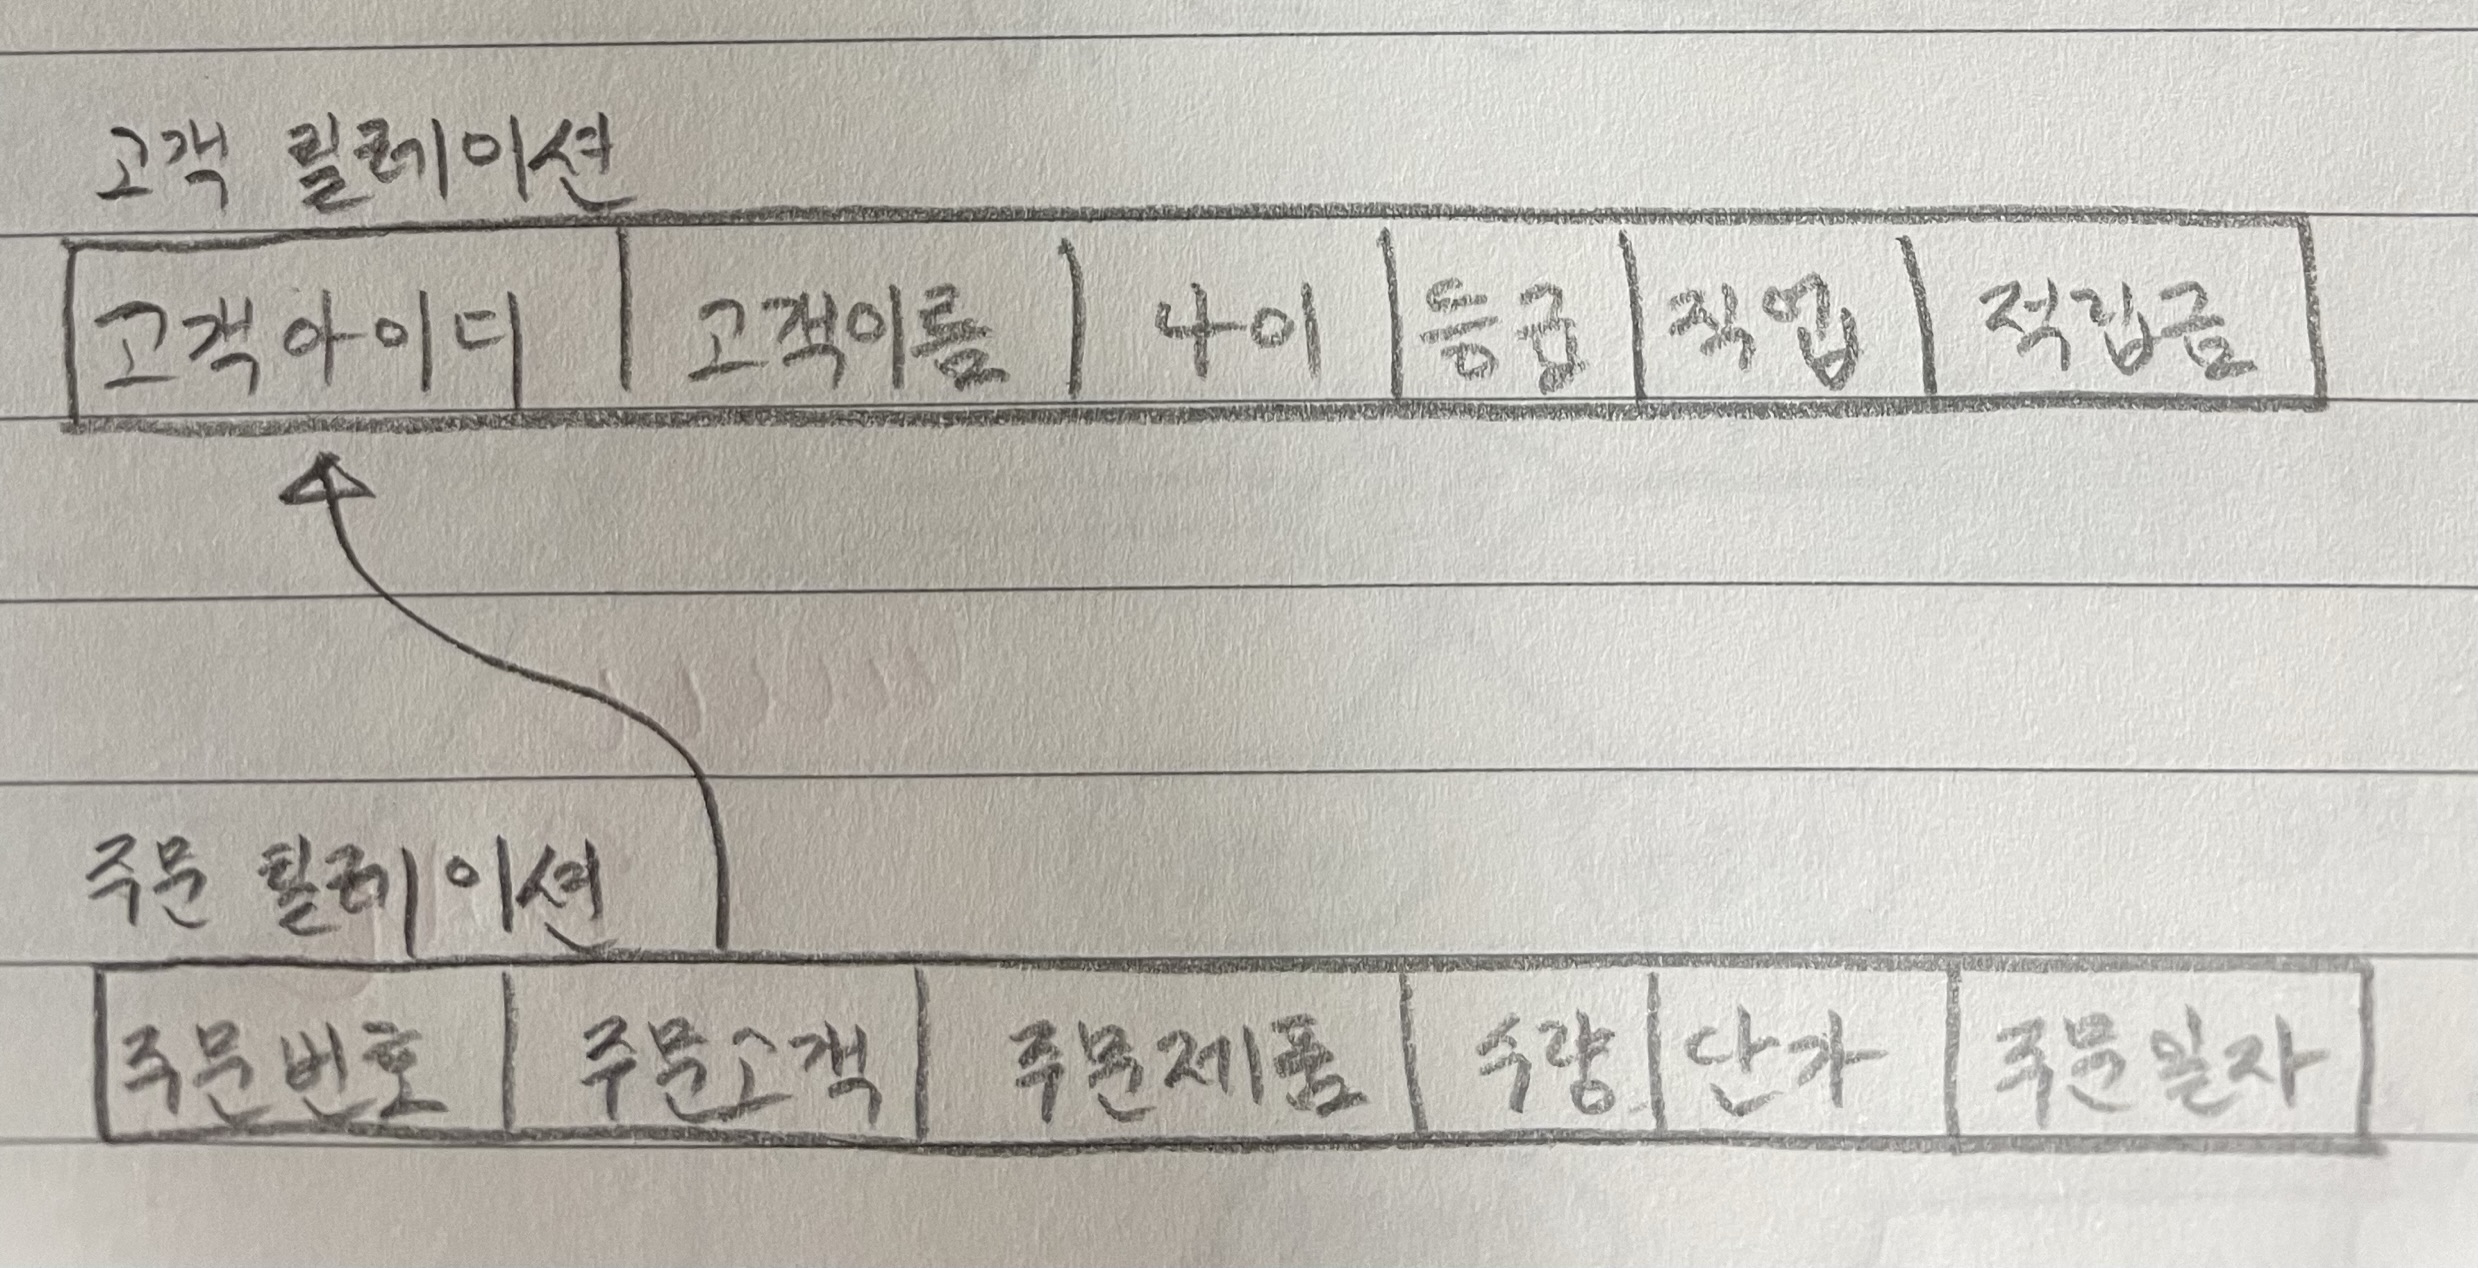 고객 릴레이션
고객아이디 고객이름 나이 등급 직업 적립금
주문 릴레이션
주문번호 주문고객 주문제품 수량 단가 주문일자